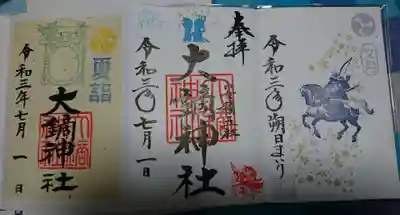 令和三年朔日まいり
奉拝
大鏑神社
令和三年七月一日
夏詣
大鏑神社
令和三年七月一日